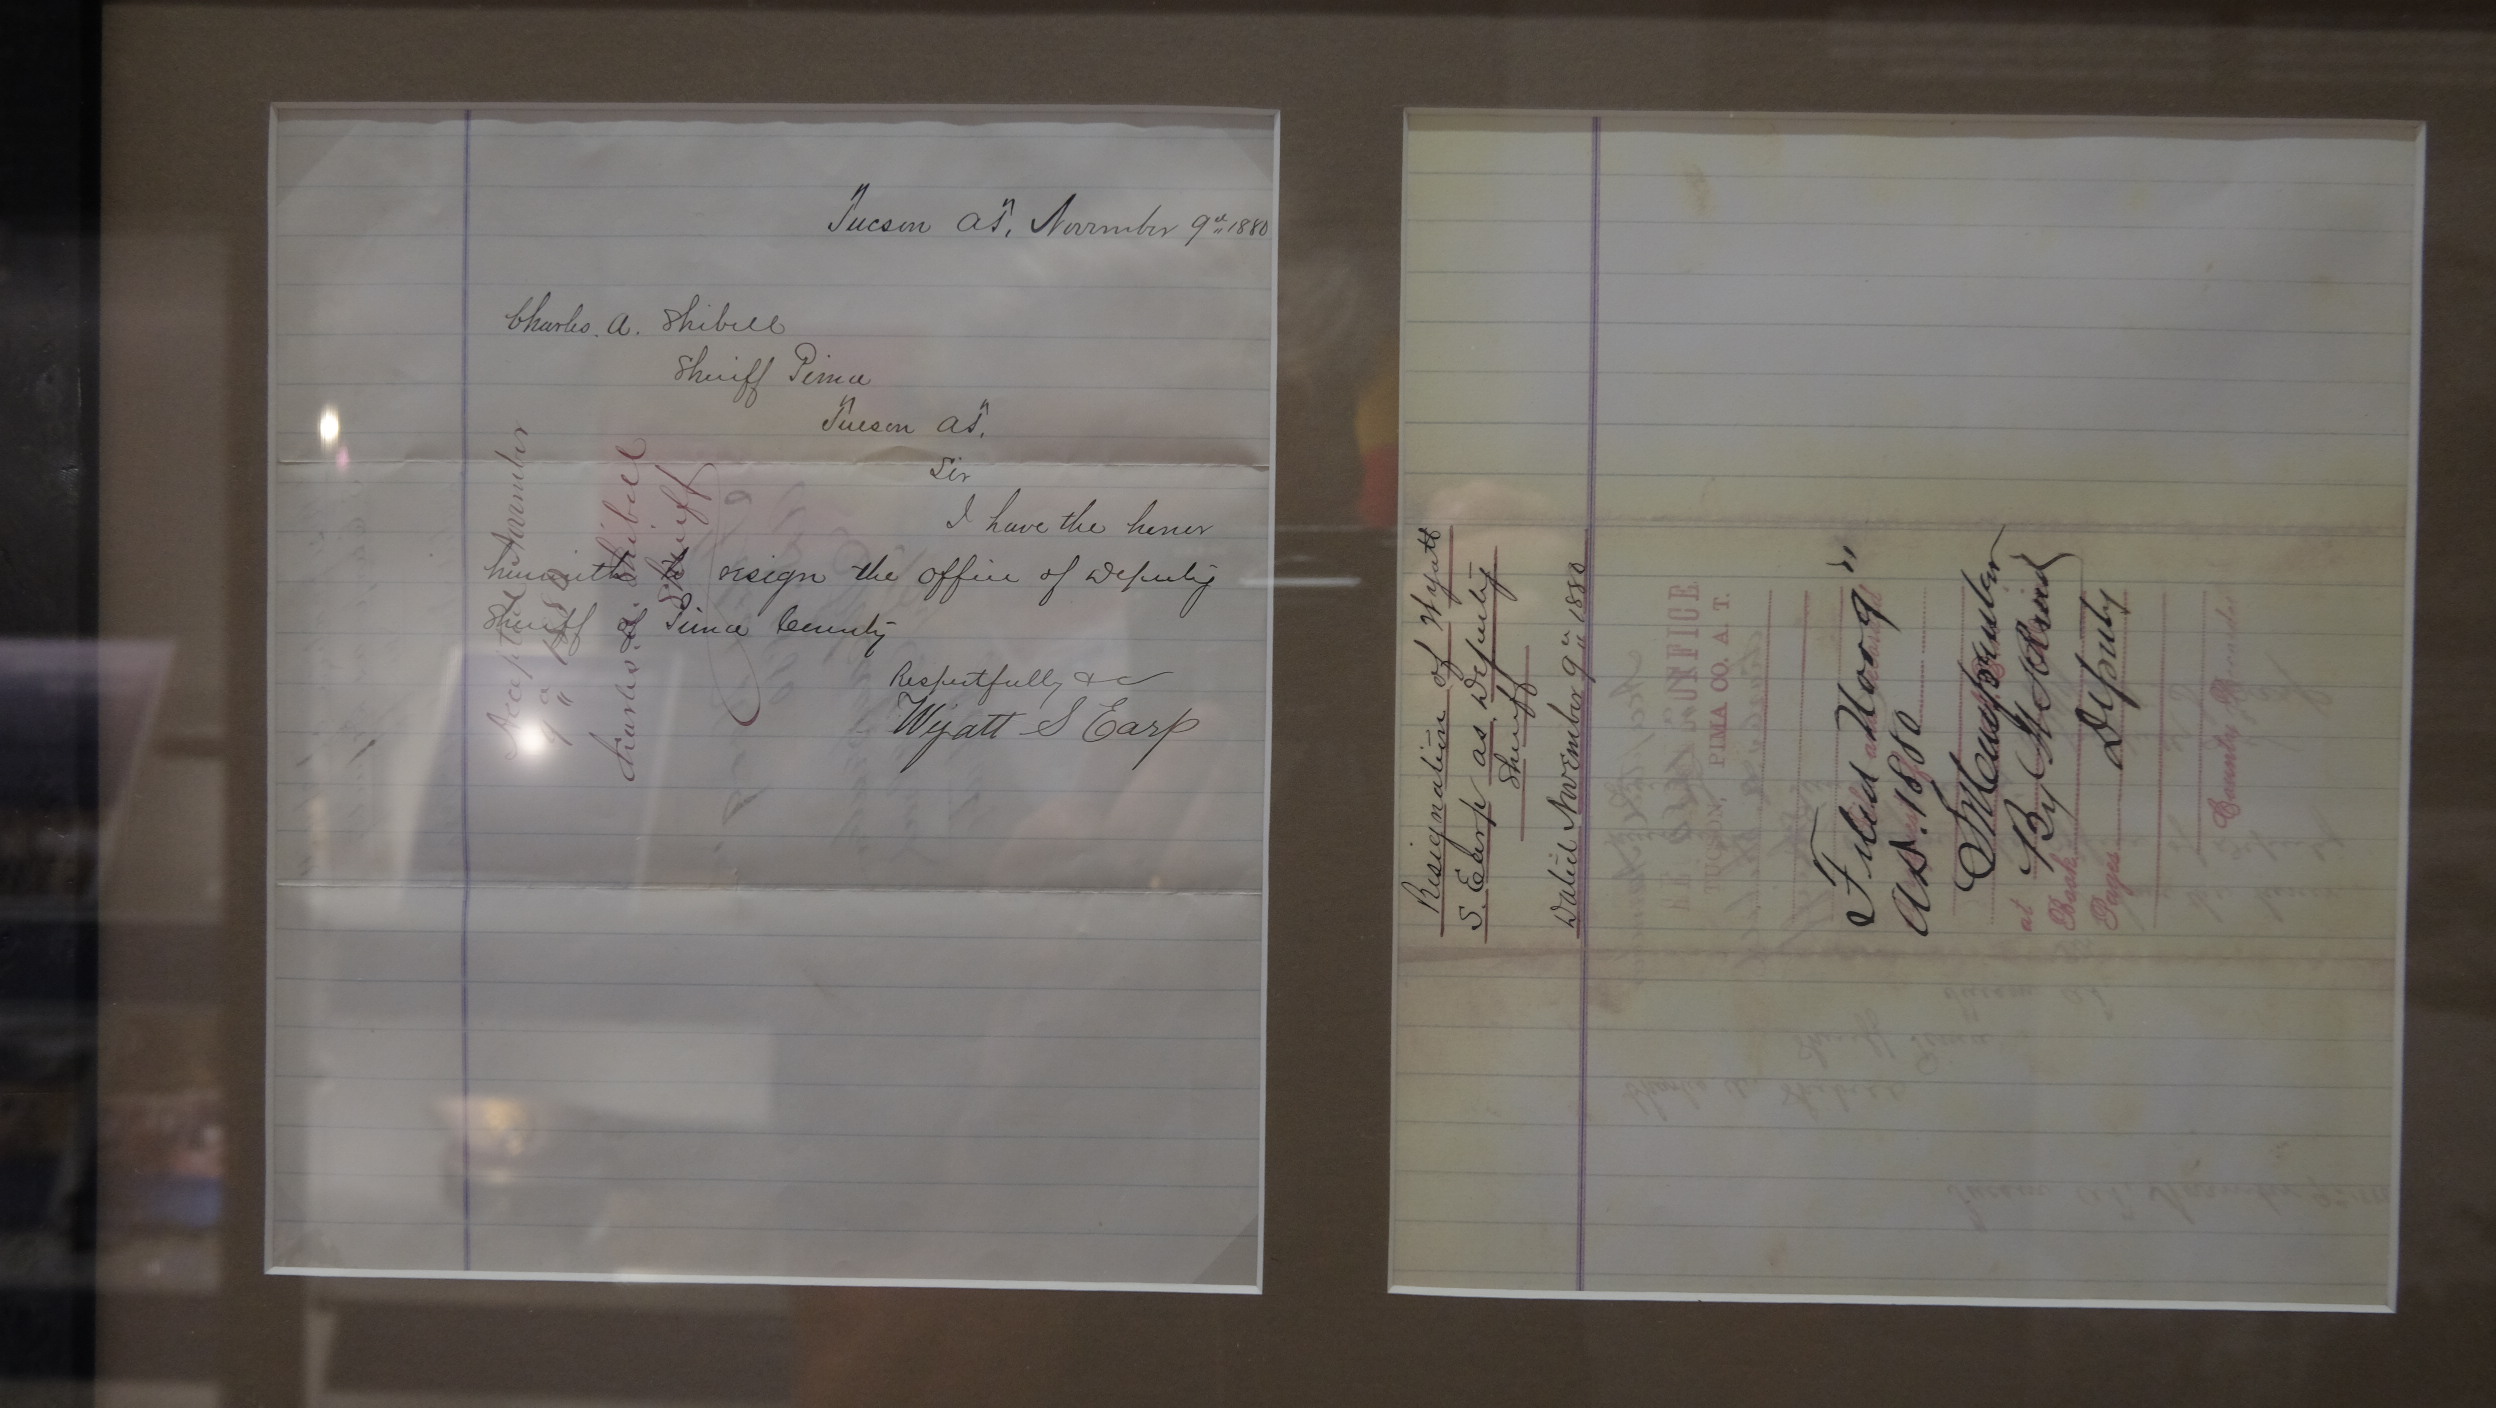 Tucson A.T. November 9th 1880
Charles. A. Shibell
Sheriff Pima
Tucson A.T.
Sir
I have the honor
herewith to resign the office of Deputy
Sheriff of Pima County
Respectfully &c
Wyatt S Earp
Accepted November
9th 1880
Charles. A. Shibell
Sheriff
Resignation of Wyatt
S. Earp as Deputy
Sheriff
Dated November 9th 1880
RECORDER'S OFFICE
TUCSON, PIMA CO. A. T.
Filed Nov 9"
AD. 1880
By
Deputy
at
Book
Pages
County Recorder